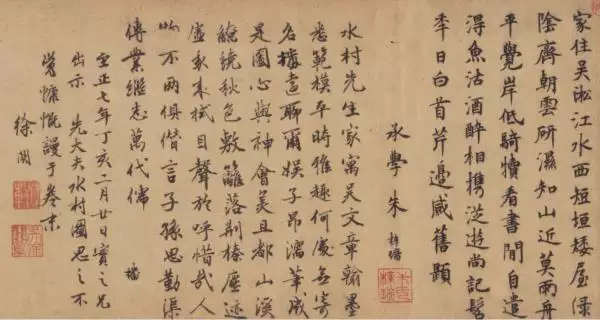 家住吴淞江水西短垣矮屋緑
陰齊朝雲研濕知山近莫雨舟
平覺岸低騎犢看書間自遣
得魚沽酒醉相携從遊尚記髫
年日白首芹邊感舊題
承學朱
水村先生家寓吴文章翰墨
悉範模平時雅趣何處無寄
名遠聊爾娱子昂濡筆成
是圖心與神會美且都山溪
繞秋色敷籬落荆榛塵迹
虚我来拭目聲於呼惜哉人
以不两俱借言子孫思勤渠
傳業继志萬代儒
至正七年丁亥二月廿日寳之兄
出示 先大夫水村圖思之不
覺慷慨謾于卷末
徐関